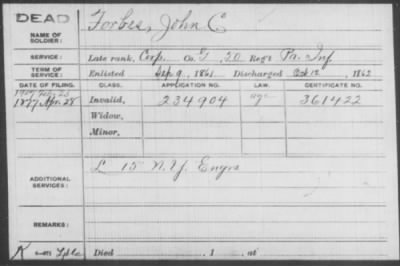 DEAD
NAME OF SOLDIER: Forbes, John C
SERVICE: Late rank, Corp. Co. G, 30 Reg't Pa. Inf
TERM OF SERVICE: Enlisted Sep 9, 1861 Discharged Oct 12, 1862
DATE OF FILING. CLASS. APPLICATION NO. LAW. CERTIFICATE NO.
1877 Apr. 28 Invalid, 234904 361422
Widow,
Minor,
ADDITIONAL SERVICES: L 15 N.Y. Engrs
REMARKS:
K Died 1